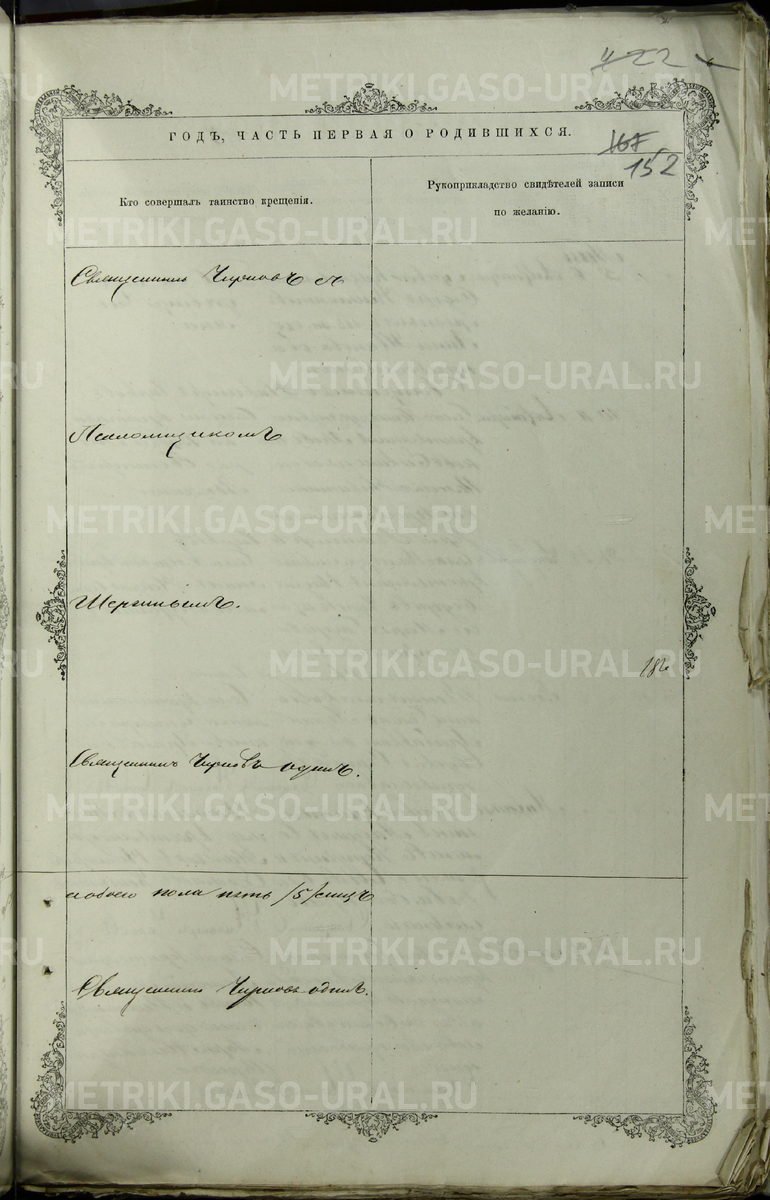 4 22
ГОДЪ, ЧАСТЬ ПЕРВАЯ О РОДИВШИХСЯ.
167
152
Кто совершалъ таинство крещенія.
Рукоприкладство свидѣтелей записи
по желанію.
Священникъ Чирковъ съ
Псаломщикомъ
182
Священникъ Чирковъ одинъ.
обоего пола пять /5/ лицъ
Священникъ Чирковъ одинъ.
METRIKI.GASO-URAL.RU